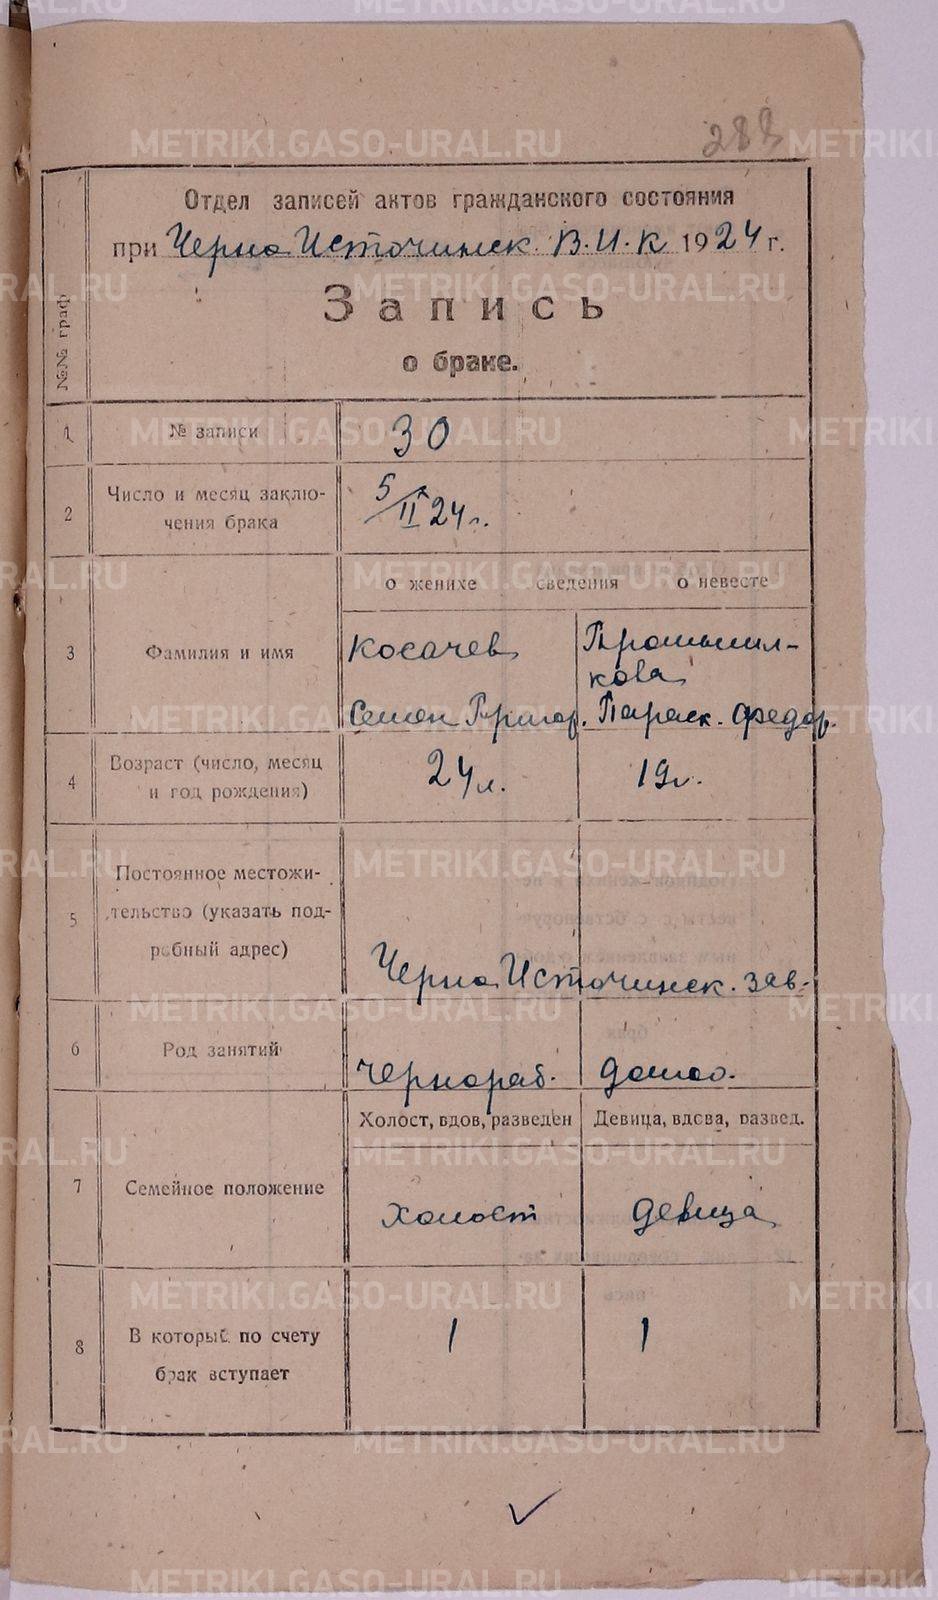 288
Отдел записей актов гражданского состояния
при Черно Источинск. В.И.К 1924 г.
№№ граф
Запись
о браке.
1 № записи 30
2 Число и месяц заклю-
чения брака 5/II 24 г.
о женихе сведения о невесте
3 Фамилия и имя Косачев Промышл-
кова
Семен Григор. Параск. Федор.
4 Возраст (число, месяц
и год рождения) 24 л. 19 л.
5 Постоянное местожи-
тельство (указать под-
робный адрес)
Черно Источинск. зав.
6 Род занятий чернораб. домаш.
Холост, вдов, разведен Девица, вдова, развед.
7 Семейное положение холост девица
8 В который по счету
брак вступает 1 1
METRIKI.GASO-URAL.RU